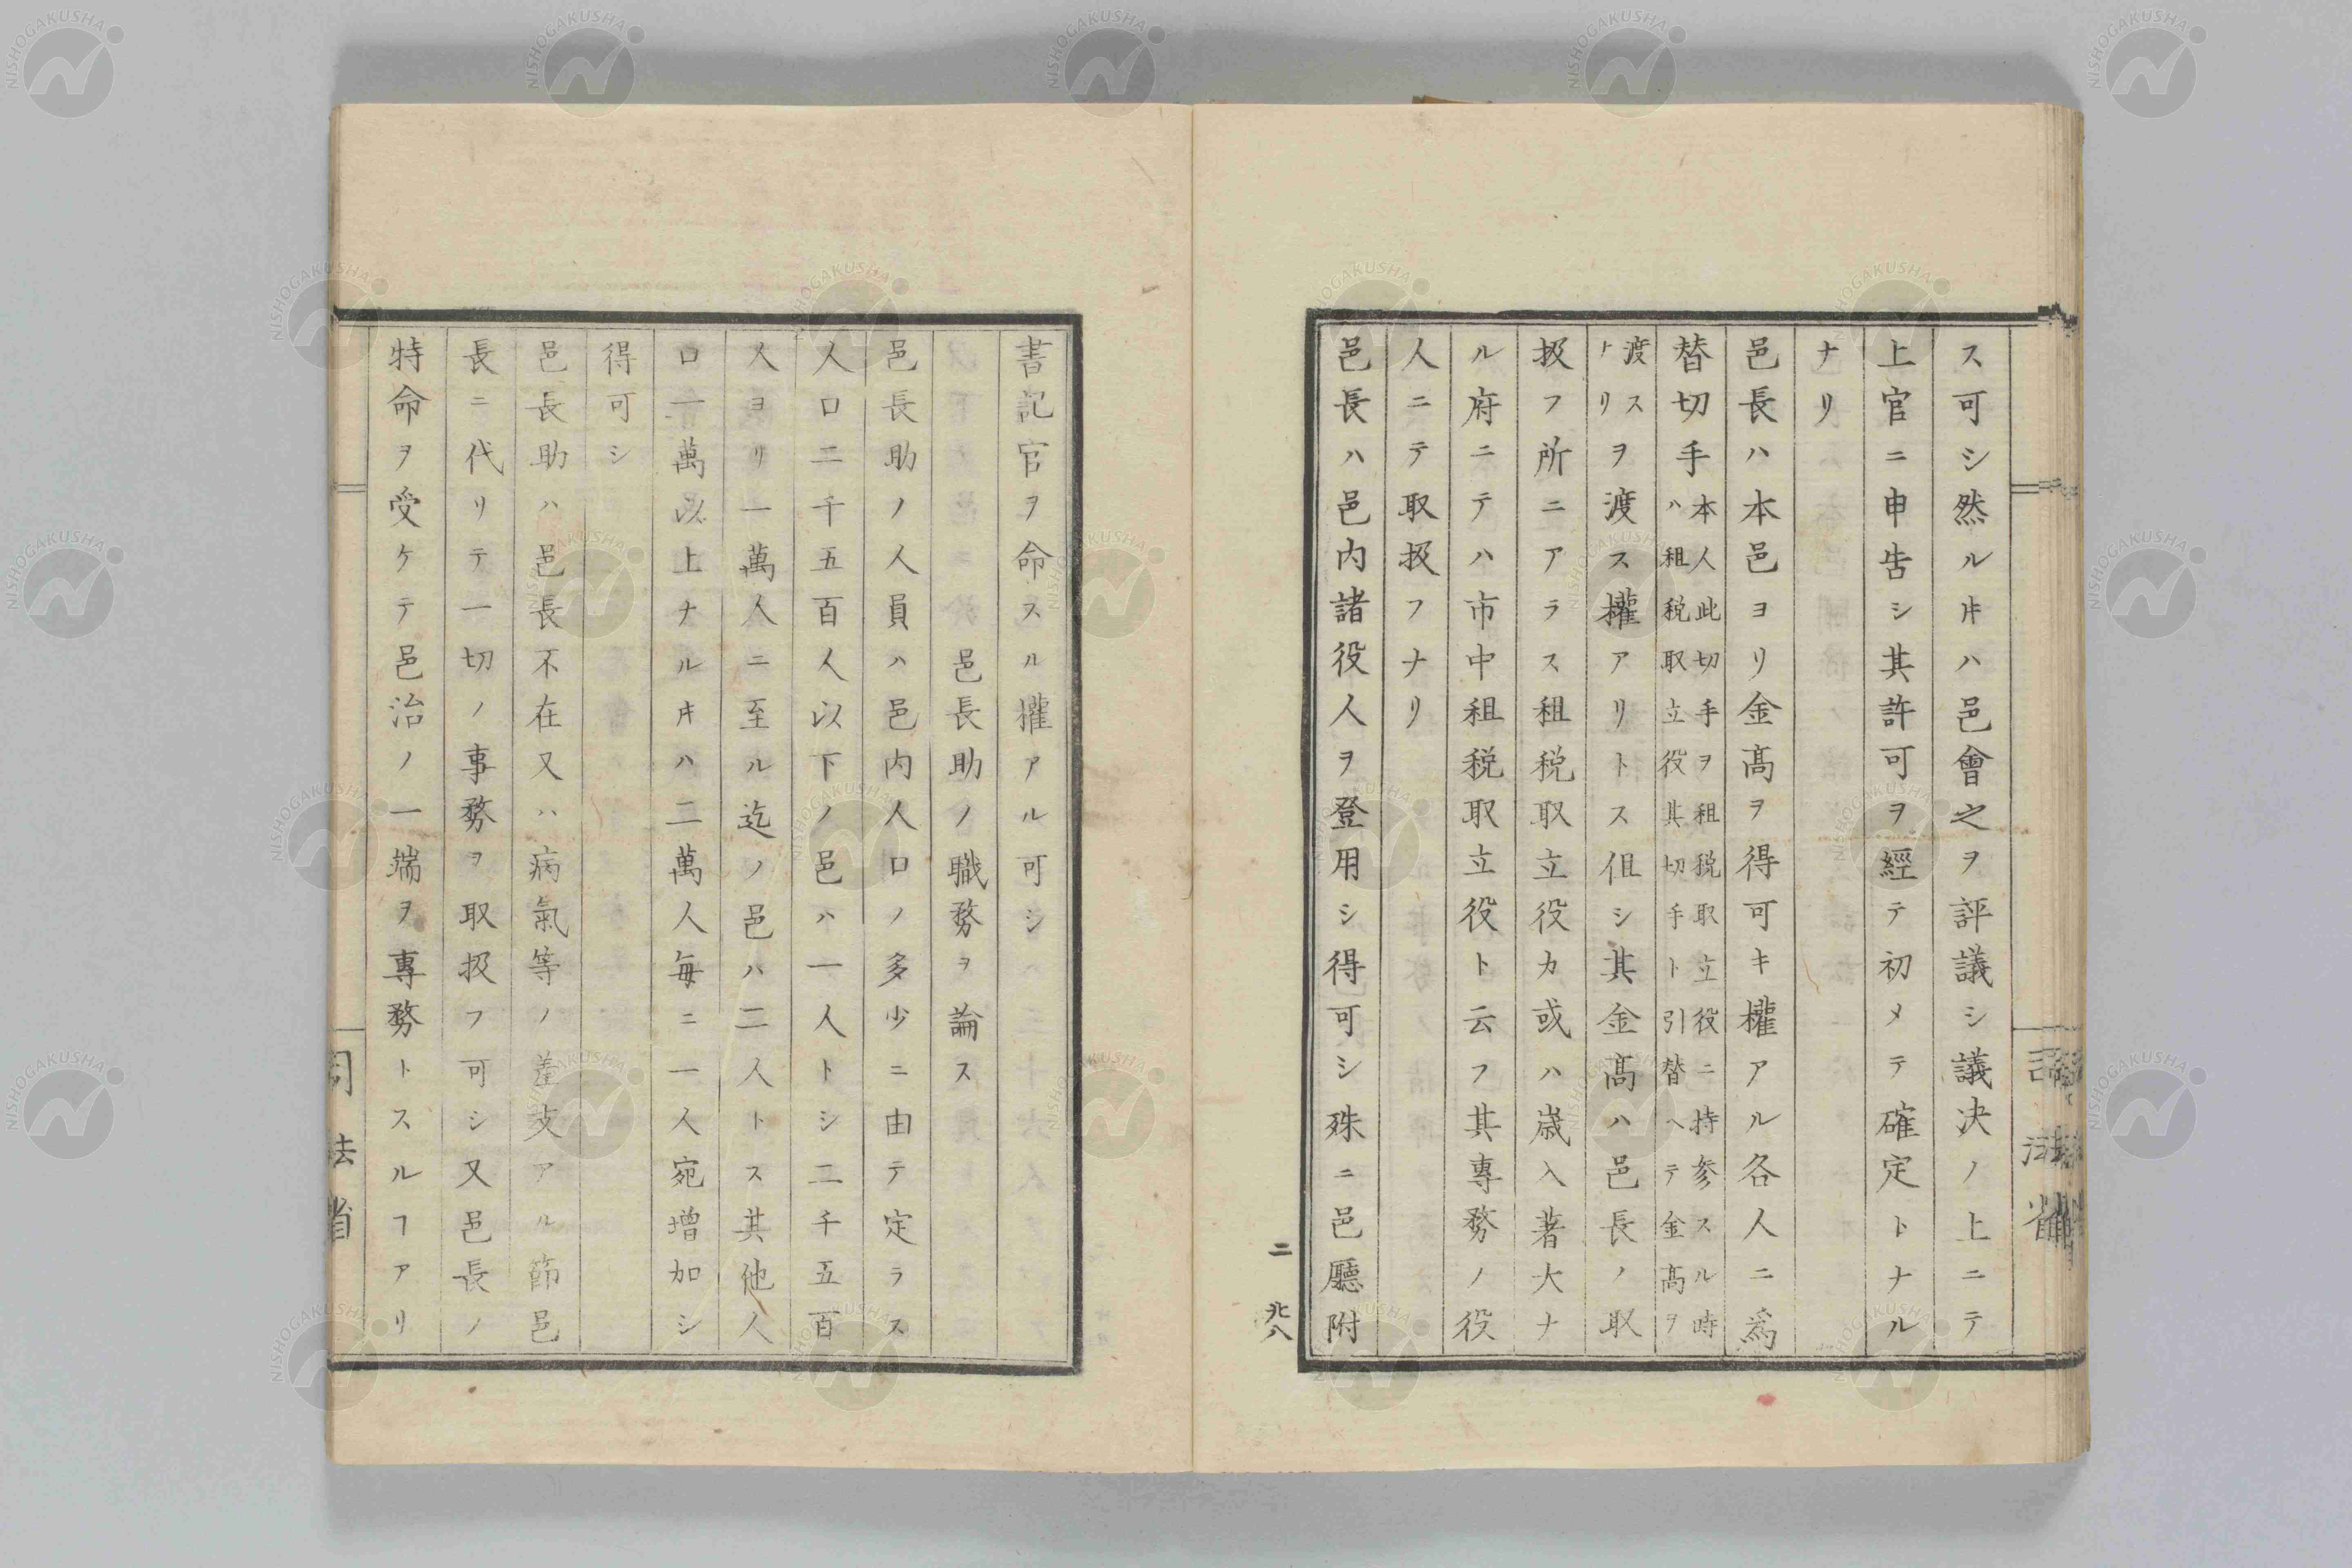 ス可シ然ルヰハ邑會之ヲ評議シ議决ノ上ニテ
上官ニ申告シ其許可ヲ經テ初メテ確定トナル
ナリ
邑長ハ本邑ヨリ金髙ヲ得可キ權アル各人ニ爲
替切手本人此切手ヲ租税取立役ニ持参スル時
ハ租税取立役其切手ト引替ヘテ金髙ヲ
渡ス
トリヲ渡ス權アリトス伹シ其金髙ハ邑長ノ取
扱フ所ニアラス租税取立役カ或ハ歳入著大ナ
ル府ニテハ市中租税取立役ト云フ其專務ノ役
人ニテ取扱フナリ
邑長ハ邑内諸役人ヲ登用シ得可シ殊ニ邑廳附
二 北八
書記官ヲ命スル權アル可シ
邑長助ノ職務ヲ論ス
邑長助ノ人員ハ邑内人口ノ多少ニ由テ定ラス
人口二千五百人以下ノ邑ハ一人トシ二千五百
人ヨリ一萬人ニ至ル迄ノ邑ハ二人トス其他人
口一萬以上ナルヰハ二萬人毎ニ一人宛増加シ
得可シ
邑長助ハ邑長不在又ハ病氣等ノ差支アル節邑
長ニ代リテ一切ノ事務ヲ取扱フ可シ又邑長ノ
特命ヲ受ケテ邑治ノ一端ヲ專務トスルヿアリ
司法省
NISHOGAKUSHA